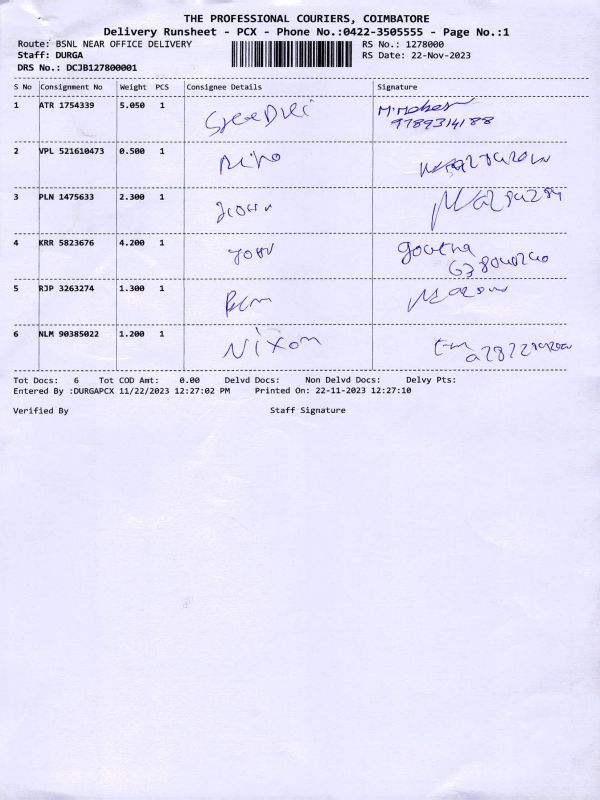 THE PROFESSIONAL COURIERS, COIMBATORE
Delivery Runsheet - PCX - Phone No.:0422-3505555 - Page No.:1
Route: BSNL NEAR OFFICE DELIVERY RS No.: 1278000
Staff: DURGA RS Date: 22-Nov-2023
DRS No.: DCJB127800001
S No Consignment No Weight PCS Consignee Details Signature
1 ATR 1754339 5.050 1
9789314188
2 VPL 521610473 0.500 1
3 PLN 1475633 2.300 1
4 KRR 5823676 4.200 1
5 RJP 3263274 1.300 1
6 NLM 90385022 1.200 1 Nixon
Tot Docs: 6 Tot COD Amt: 0.00 Delvd Docs: Non Delvd Docs: Delvy Pts:
Entered By :DURGAPCX 11/22/2023 12:27:02 PM Printed On: 22-11-2023 12:27:10
Verified By Staff Signature